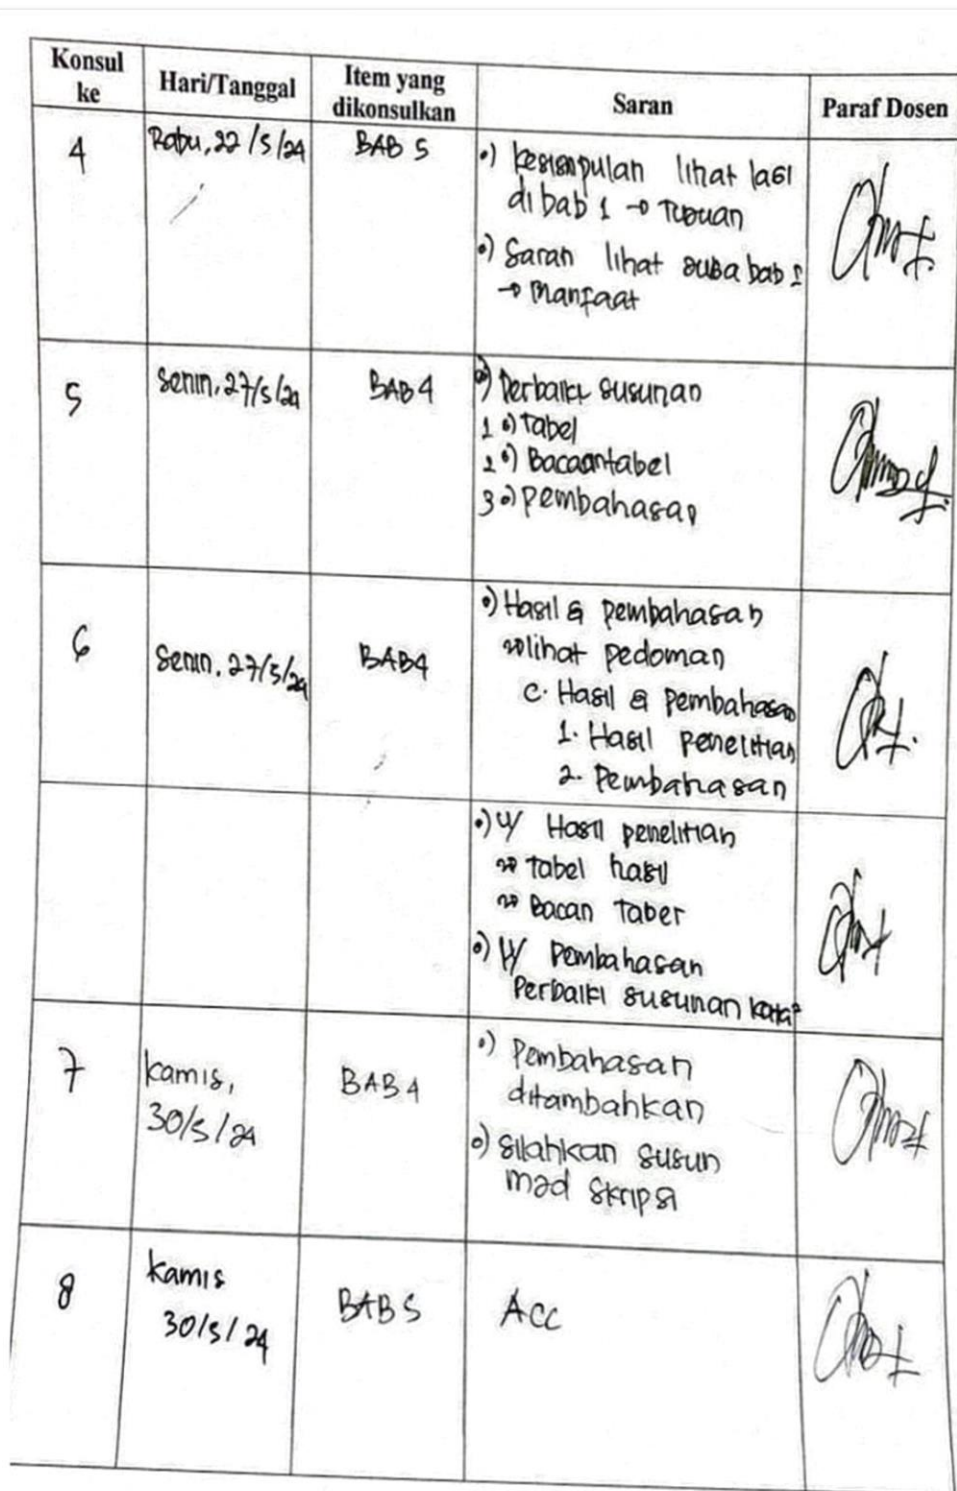 Konsul ke
Hari/Tanggal
Item yang dikonsulkan
Saran
Paraf Dosen
4
Rabu, 22/5/24
BAB 5
•) Kesimpulan lihat lagi
di bab 1 → Tujuan
•) Saran lihat juga bab 1
→ Manfaat
5
Senin, 27/5/24
BAB 4
•) Perbaiki susunan
1 •) Tabel
2 •) Bacaantabel
3 •) pembahasan
6
Senin, 27/5/24
BAB4
•) Hasil & pembahasan
lihat pedoman
C. Hasil & pembahasan
1. Hasil penelitian
2. Pembahasan
•) U/ Hasil penelitian
Tabel hasil
Bacan Taber
•) U/ Pembahasan
Perbaiki susunan kata²
7
Kamis,
30/5/24
BAB 4
•) Pembahasan
ditambahkan
•) Silahkan susun
mjd skripsi
8
Kamis
30/5/24
BAB 5
Acc